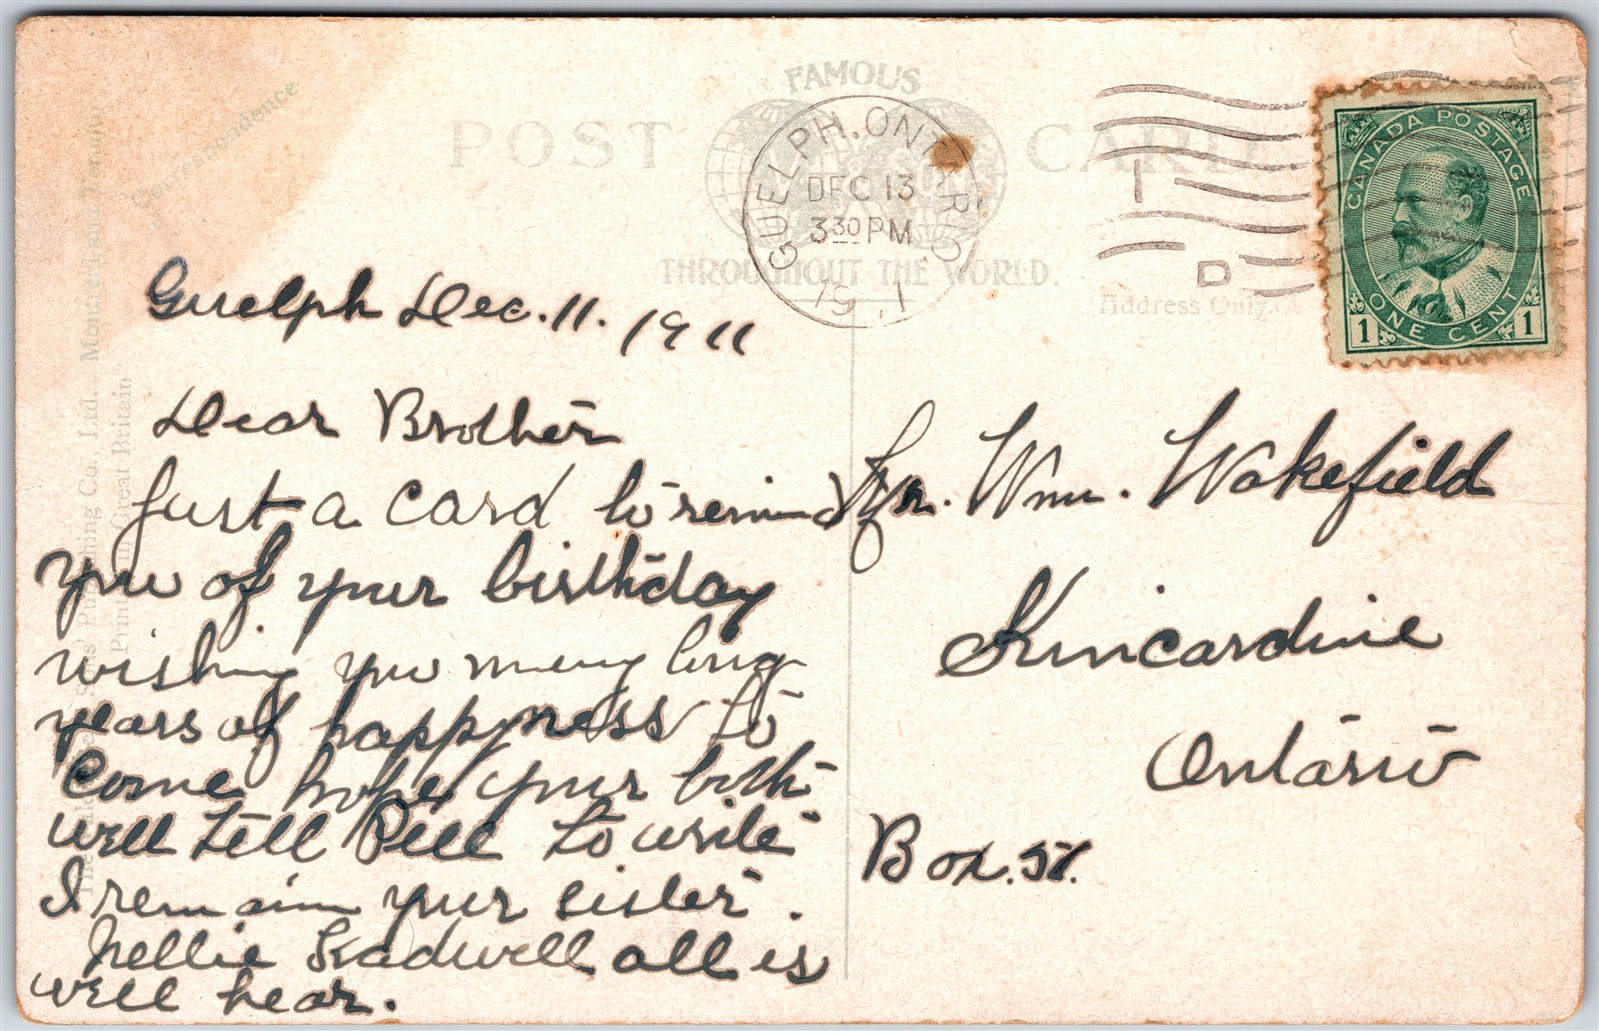 POST CARD
FAMOUS
THROUGHOUT THE WORLD.
Correspondence
Address Only.
GUELPH. ONTARIO
DEC 13
3 30 PM
19 1
1
D
CANADA POSTAGE
ONE CENT
1 1
Guelph Dec. 11. 1911
Dear Brother
Just a card to remind
you of your birthday
wishing you meny long
years of happyness to
Come hope your both
well tell Pell to write
I remain your sister.
Nellie all is
well hear.
Mr. Wm. Wakefield
Kincardine
Ontario
Box.
Ltd. Montreal and Toronto
Printed in Great Britain"